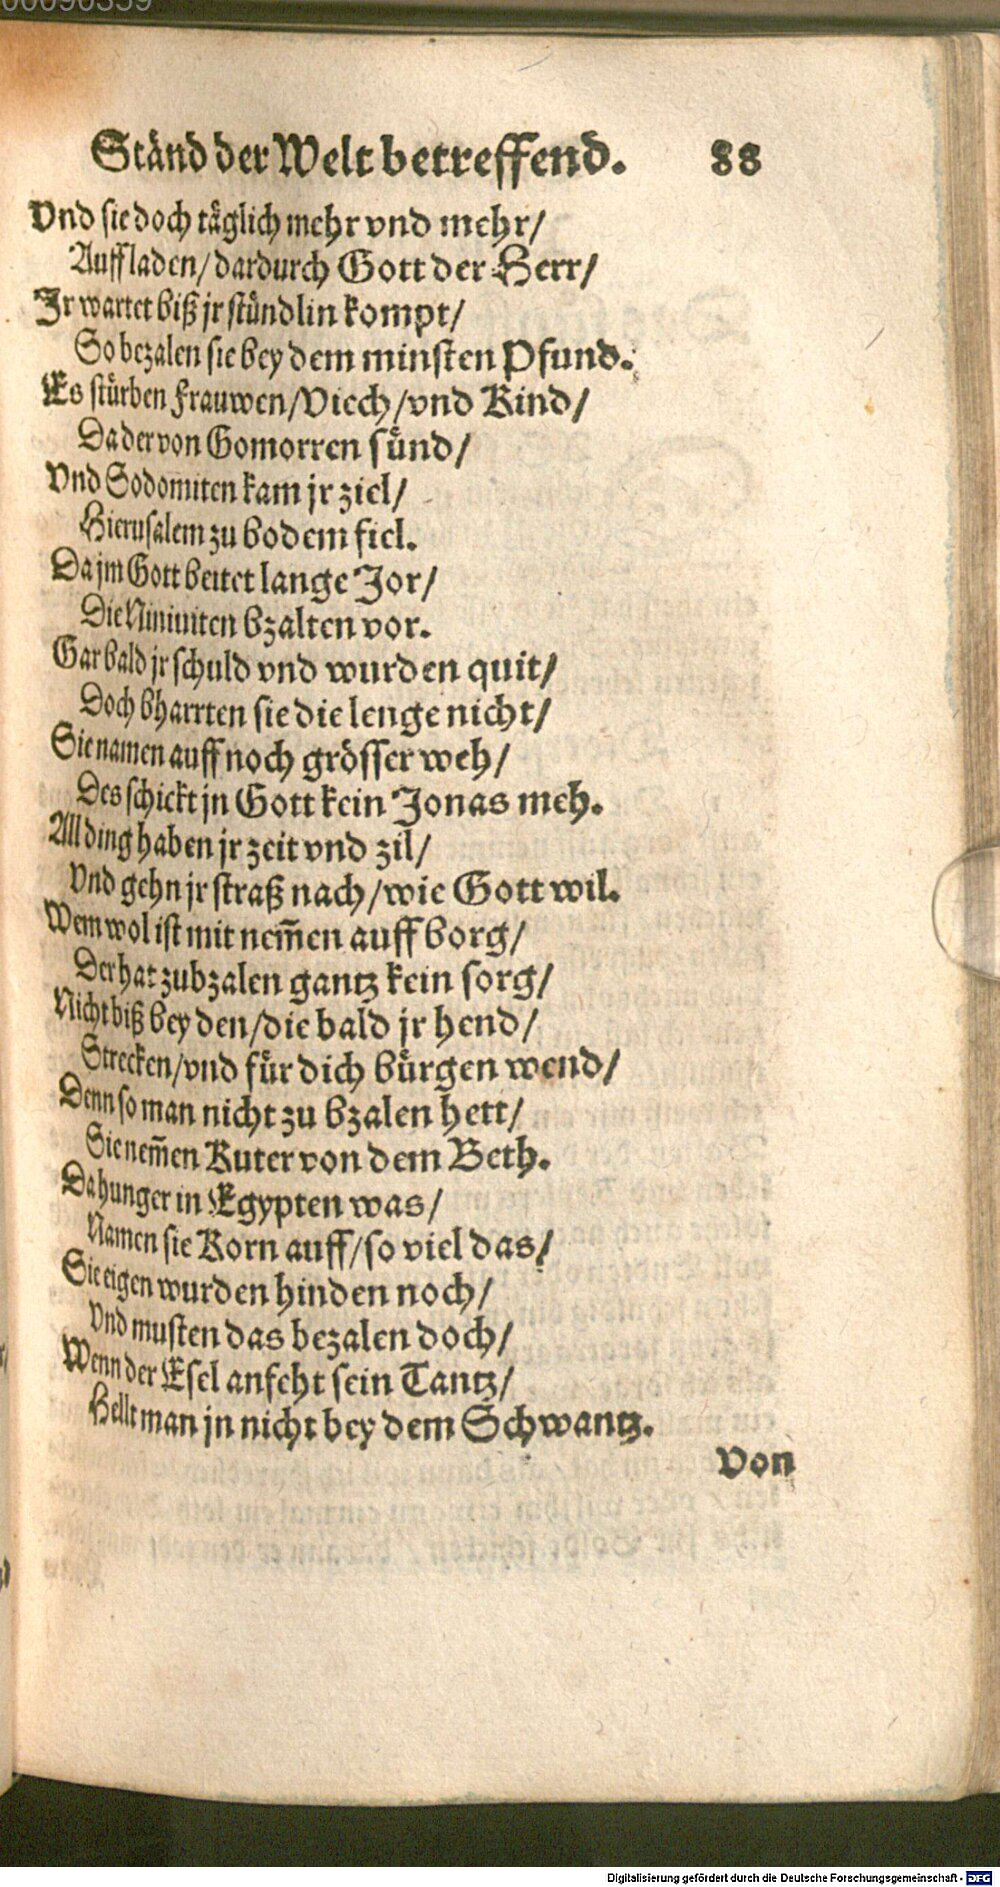 00090359
Ständ der Welt betreffend. 88
Vnd sie doch täglich mehr vnd mehr/
Auffladen/dardurch Gott der Herr/
Jr wartet biß jr stündlin kompt/
So bezalen sie bey dem minsten Pfund.
Es stürben Frauwen/Viech/vnd Kind/
Da der von Gomorren sünd/
Vnd Sodomiten kam jr ziel/
Hierusalem zu bodem fiel.
Da jm Gott beitet lange Jor/
Die Niniuiten bzalten vor.
Gar bald jr schuld vnd wurden quit/
Doch bharrten sie die lenge nicht/
Sie namen auff noch grösser weh/
Des schickt jn Gott kein Jonas meh.
All ding haben jr zeit vnd zil/
Vnd gehn jr straß nach/wie Gott wil.
Wem wol ist mit nem̃en auff borg/
Der hat zubzalen gantz kein sorg/
Nicht biß bey den/die bald jr hend/
Strecken/vnd für dich bürgen wend/
Denn so man nicht zu bzalen hett/
Sie nem̃en Kuter von dem Beth.
Da hunger in Egypten was/
Namen sie Korn auff/so viel das/
Sie eigen wurden hinden noch/
Vnd musten das bezalen doch/
Wenn der Esel anfeht sein Tantz/
Hellt man jn nicht bey dem Schwantz.
Von
Digitalisierung gefördert durch die Deutsche Forschungsgemeinschaft - DFG